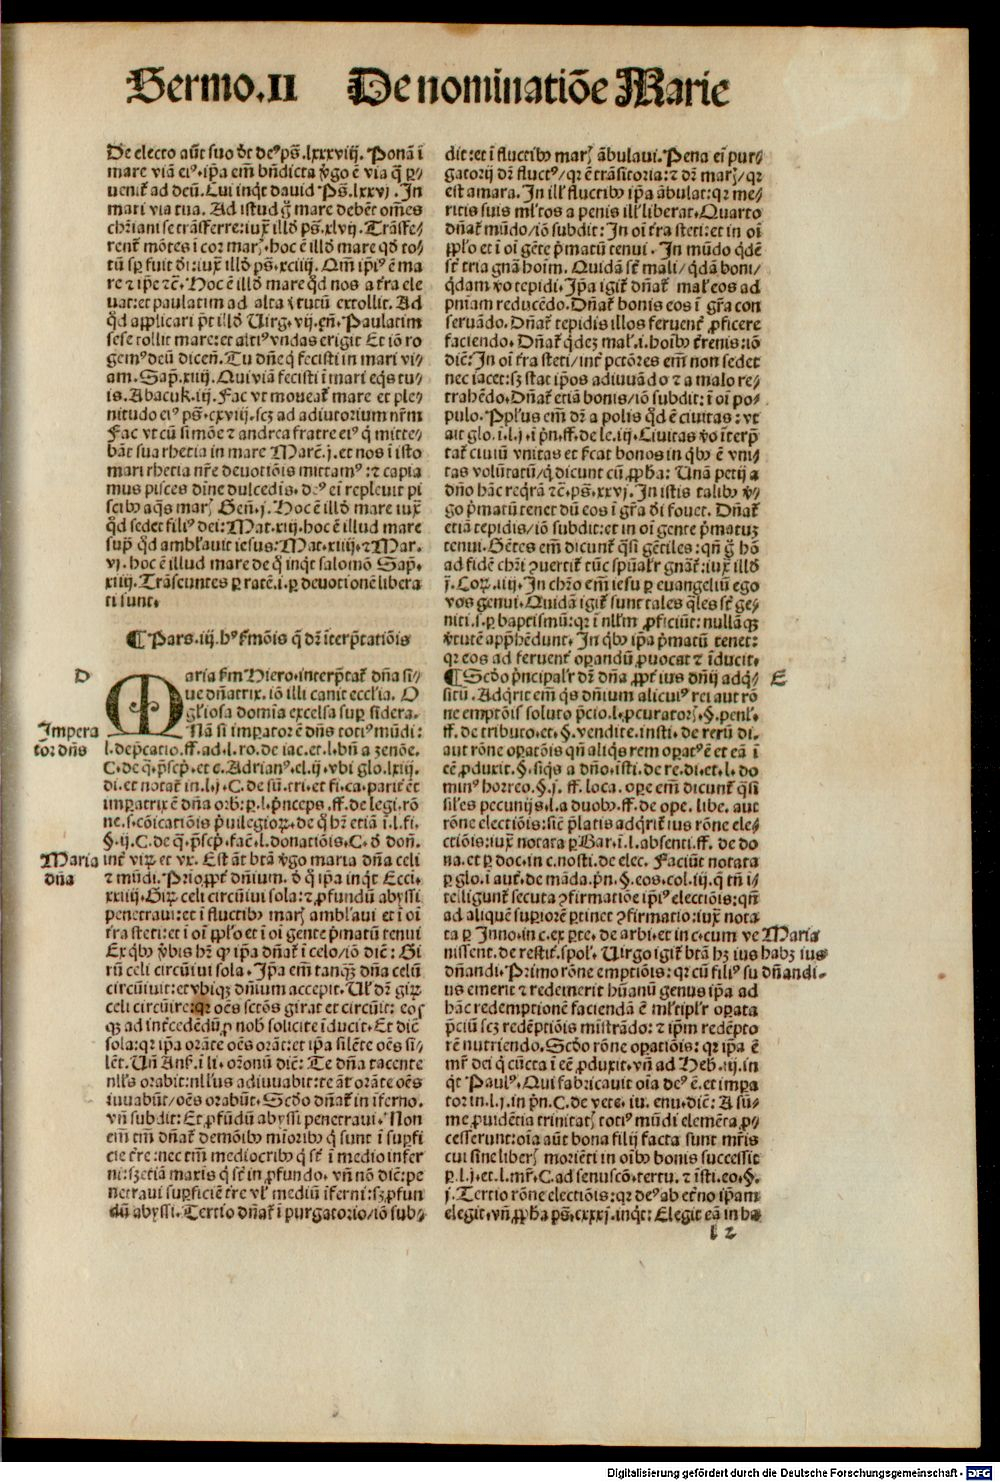 Sermo.II De nominatiōe Marie
De electo aūt suo dr̄ de⁹ ps̄.lxxxviij. Ponā ī
mare viā ei⁹.ip̄a em̄ bn̄dicta ṽgo ē via q̄ ꝑ/
uenit᷑ ad deū. Cui inq̇t dauid Ps̄.lxxvj. In
mari via tua. Ad istud g̊ mare debēt om̄es
chr̄iani se trāsferre: iux̄ illd̄ ps̄.xlvij. Trāsfe-
rent᷑ mōtes ī cor marꝭ. hoc ē illd̄ mare qd̄ to/
tū sp̄ fuit dī: iux̄ illd̄ ps̄.xciiij. Qm̄ ip̄i⁹ ē ma
re ⁊ ip̄e ⁊c̄. Hoc ē illd̄ mare qd̄ nos a t̄ra ele
uat: et paulatim ad alta ⁊ tutū extollit. Ad
qd̄ applicari p̄t illd̄ Uirg. vij. en̄. Paulatim
sese tollit mare: et alti⁹ vndas erigit Et iō ro
gem⁹ deū dicen̄. Tu dn̄e q̄ fecisti in mari vi/
am. Sap̄.xiiij. Qui viā fecisti ī mari eq̄s tu/
is. Abacuk.iij. Fac vt moueat᷑ mare et ple/
nitudo ei⁹ ps̄.cxviij. scꝫ ad adiutorium nr̄m
Fac vt cū simōe ⁊ andrea fratre ei⁹ q̇ mitte/
bāt sua rhetia in mare Marc̄.j. et nos ī isto
mari rhetia nr̄e deuotiōis mittam⁹: ⁊ capia
mus pisces diuīe dulcedīs. de⁹ em̄ repleuit pi
scibꝰ aq̄s marꝭ Gen̄.j. Hoc ē illd̄ mare iux̄
qd̄ sedet fili⁹ dei: Mat.xiij. hoc ē illud mare
sup̄ qd̄ ambl̄auit iesus: Mat.xiiij. ⁊ Mar.
vj. hoc ē illud mare de q̊ inq̇t salomō Sap̄.
xiiij. Trāseuntes ꝑ ratē.i. ꝑ deuotionē libera
ti sunt.
¶ Pars.iij. h⁹ ẜmōis q̄ dr̄ īterp̄tatiōis
D
Maria ẜm Hiero. interp̄tat᷑ dn̄a si/
ue dn̄atrix. iō illi canit eccl̄ia. O
gl̄iosa domīa excelsa sup̄ sīdera.
Impera
tor dn̄s
Nā si imperator ē dn̄s toti⁹ mūdi:
l. dep̄catio. ff. ad. l. ro. de iac. et. l. bn̄ a zenōe.
C. de q̄. p̄scp̄. et c. Adrian⁹. el. ij. vbi glo. lxiij.
di. et notat᷑ in. l. j. C. de sū. tri. et fi. ca. parit᷑ ēt
imp̄atrix ē dn̄a orb̄. ꝑ. l. p̄nceps. ff. de legi. rō
ne. s. cōicatiōis p̄uilegioꝝ. de q̊ hr̄ etiā ī. l. fi.
§. ij. C. de q̄. p̄scp̄. fac̄. l. donatiōis. C. d̄ don̄.
Maria
dn̄a
int᷑ viꝝ et vx̄. Est āt btā̄ ṽgo maria dn̄a celi
⁊ mūdi. Prio. ꝓpt᷑ dn̄ium. d̄ q̊ ip̄a inq̇t Ecci.
xxiiij. Girū celi circūiui sola: ⁊ ꝓfundū abyssi
penetraui: et ī fluctibꝰ marꝭ ambl̄aui et ī oī
t̄ra steti: et ī oī ppl̄o et ī oī gente p̄matū tenui
Ex qbꝰ ṽbis hr̄ ꝙ ip̄a dn̄at᷑ ī celo/iō diē: Gi
rū celi circūiui sola. Ip̄a em̄ tanqꝫ dn̄a celū
circūiuit: et vbiqꝫ dn̄ium accepit. Ul̄ dr̄ girū
celi circūire: qꝛ oēs sctōs girat et circūit: eos
qꝫ ad int᷑cedēdū ꝓ nob̄ solicite īducit. Et diē
sola: qꝛ ip̄a orāte oēs orāt: et ip̄a silēte oēs si/
lēt. Un̄ Anẜ. ī li. or̄onū diē: Te dn̄a tacente
null̄s orabit: nl̄lus adiuuabit: te āt orāte oēs
iuuabūt/oēs orabūt. Scd̄o dn̄at᷑ in īferno.
vn̄ subdit: Et ꝓfūdū abyssi penetraui. Non
em̄ tm̄ dn̄at᷑ demōibꝰ mīoribꝰ q̇ sunt ī sup̄fi
cie t̄re: nec tm̄ mediocribꝰ q̇ st̄ ī medio infer
ni: sꝫ etiā maxīs q̇ st̄ in ꝓfundo. vn̄ nō diē: pe
netraui sup̄ficiē t̄re vl̄ mediū īferni: sꝫ ꝓfun
dū abyssi. Tertio dn̄at᷑ ī purgatorio/iō sub/
dit: et ī fluctibꝰ marꝭ ābulaui. Pena em̄ pur/
gatorij dr̄ fluct⁹/qꝛ ē trāsitoria: ⁊ dr̄ marꝭ/qꝛ
est amara. In ill̄ fluctibꝰ ip̄a ābulat: qꝛ me/
ritis suis ml̄tos a penis ill̄ liberat. Quarto
dn̄at᷑ mūdo/iō subdit: In oī t̄ra steti: et in oī
ppl̄o et ī oī gēte p̄matū tenui. In mūdo q̇dē
st̄ tria gn̄a hoīm. Quidā st̄ mali/q̇dā boni/
q̇dam ṽo tepidi. Ip̄a igit᷑ dn̄at᷑ mal̄ eos ad
pn̄iam reducēdo. Dn̄at᷑ bonis eos ī gr̄a con
seruādo. Dn̄at᷑ tepidis illos feruent᷑ ꝓficere
faciendo. Dn̄at᷑ q̇deꝫ mal̄.i. hoībꝰ t̄renis: iō
diē: In oī t̄ra steti/int᷑ pctōres em̄ non sedet
nec iacet: sꝫ stat ip̄os adiuuādo ⁊ a malo re/
trahēdo. Dn̄at᷑ etiā bonis/iō subdit: ī oī po/
pulo. Ppl̄us em̄ dr̄ a polis qd̄ ē ciuitas: vt
ait glo. ī. l. j. ī p̄n. ff. de le. iij. Ciuitas ṽo īterp̄
tat᷑ ciuiū vnitas et ẜcat bonos in qbꝰ ē vni/
tas volūtatū/q̇ dicunt cū ꝓph̄a: Unā petij a
dn̄o hāc req̇rā ⁊c̄. ps̄.xxvj. In istis talibꝰ ṽ/
go p̄matū tenet dū eos ī gr̄a dī fouet. Dn̄at᷑
etiā tepidis/iō subdit: et in oī gente p̄matuꝫ
tenui. Gētes em̄ dicunt᷑ q̄si gētiles: qn̄ g̊ hō
ad fidē chr̄i ꝯuertit᷑ tūc sp̄ual̄r gn̄at᷑: iux̄ illd̄
j. Coꝝ. iiij. In chr̄o em̄ iesu ꝑ euangeliū ego
vos genui. Quidā igit᷑ sunt tales q̄les st̄ ge/
niti. s. ꝑ baptismū: qꝛ ī nl̄lm̄ ꝓficiūt: nullāqꝫ
ṽtutē app̄hēdunt. In qbꝰ ip̄a p̄matū tenet:
qꝛ eos ad feruent᷑ oꝑandū ꝓuocat ⁊ īducit.
¶ Scd̄o p̄ncipal̄r dr̄ dn̄a ꝓpt᷑ ius dn̄ij adq̇/
E
sitū. Adq̇rit᷑ em̄ q̄s dn̄ium alicui⁹ rei aut rō
ne emptōis soluto p̄cio. l. ꝓcuratorꝭ. §. penl̄.
ff. de tributo. et. §. vendite. insti. de rerū di.
aut rōne oꝑatōis qn̄ aliq̇s rem oꝑat⁹ ē et eā ī
eē ꝓduxit. §. siq̇s a dn̄o. īsti. de re. di. et. l. do
min⁹ horreo. §. j. ff. loca. oꝑe em̄ dicunt᷑ q̄si
sil̄es pecunijs. l. a duobꝰ. ff. de ope. libe. aut
rōne electiōis: sic ē p̄latis adq̇rit᷑ ius rōne ele/
ctiōis: iux̄ notata ꝑ Bar. ī. l. absenti. ff. de do
na. et ꝑ doc. in c. nosti. de elec. Faciūt notata
ꝑ glo. ī aut᷑. de māda. p̄n. §. eos. col. iij. q̄ tn̄ ī
telligunt᷑ secuta ꝯfirmatiōe ip̄i⁹ electiōis: qn̄
ad aliquē sup̄iorē ꝑtinet ꝯfirmatio: iux̄ nota
ta ꝑ Inno. in c. ex ꝑte. de arbi. et in c. cum ve
Maria
habꝫ ius
dn̄andi.
nissent. de restit᷑. spol̄. Uirgo igit᷑ btā̄ hꝫ ius
dn̄andi. Primo rōne emptiōis: qꝛ cū fili⁹ su
us emerit ⁊ redemerit hūanū genus ip̄a ad
hāc redemptionē faciendā ē ml̄tipl̄r oꝑata
p̄ciū scꝫ redēptiōis mīstrādo: ⁊ ip̄m redēpto
rē nutriendo. Scd̄o rōne oꝑatiōis: qꝛ ip̄a ē
mr̄ dei q̇ cūcta ī eē ꝓduxit. vn̄ ad Heb̄. iij. in
q̇t Paul⁹. Qui fabricauit oīa de⁹ ē. et imꝑa
tor in. l. j. in p̄n. C. de vete. iu. enu. diē: A sū/
me ꝓuidētia trinitatꝭ toti⁹ mūdi elemēta ꝓ/
cesserunt: oīa aūt bona filij facta sunt mr̄is
cui sine liberꝭ moriēti in oībꝰ bonis successit
ꝑ. l. j. et. l. mr̄. C. ad senuscō. tertu. ⁊ īsti. eo. §.
j. Tertio rōne electiōis: qꝛ de⁹ ab et᷑no ip̄am
elegit. vn̄ ꝓph̄a ps̄.cxxxj. inq̇t: Elegit eā in ha
l 2
Digitalisierung gefördert durch die Deutsche Forschungsgemeinschaft - DFG